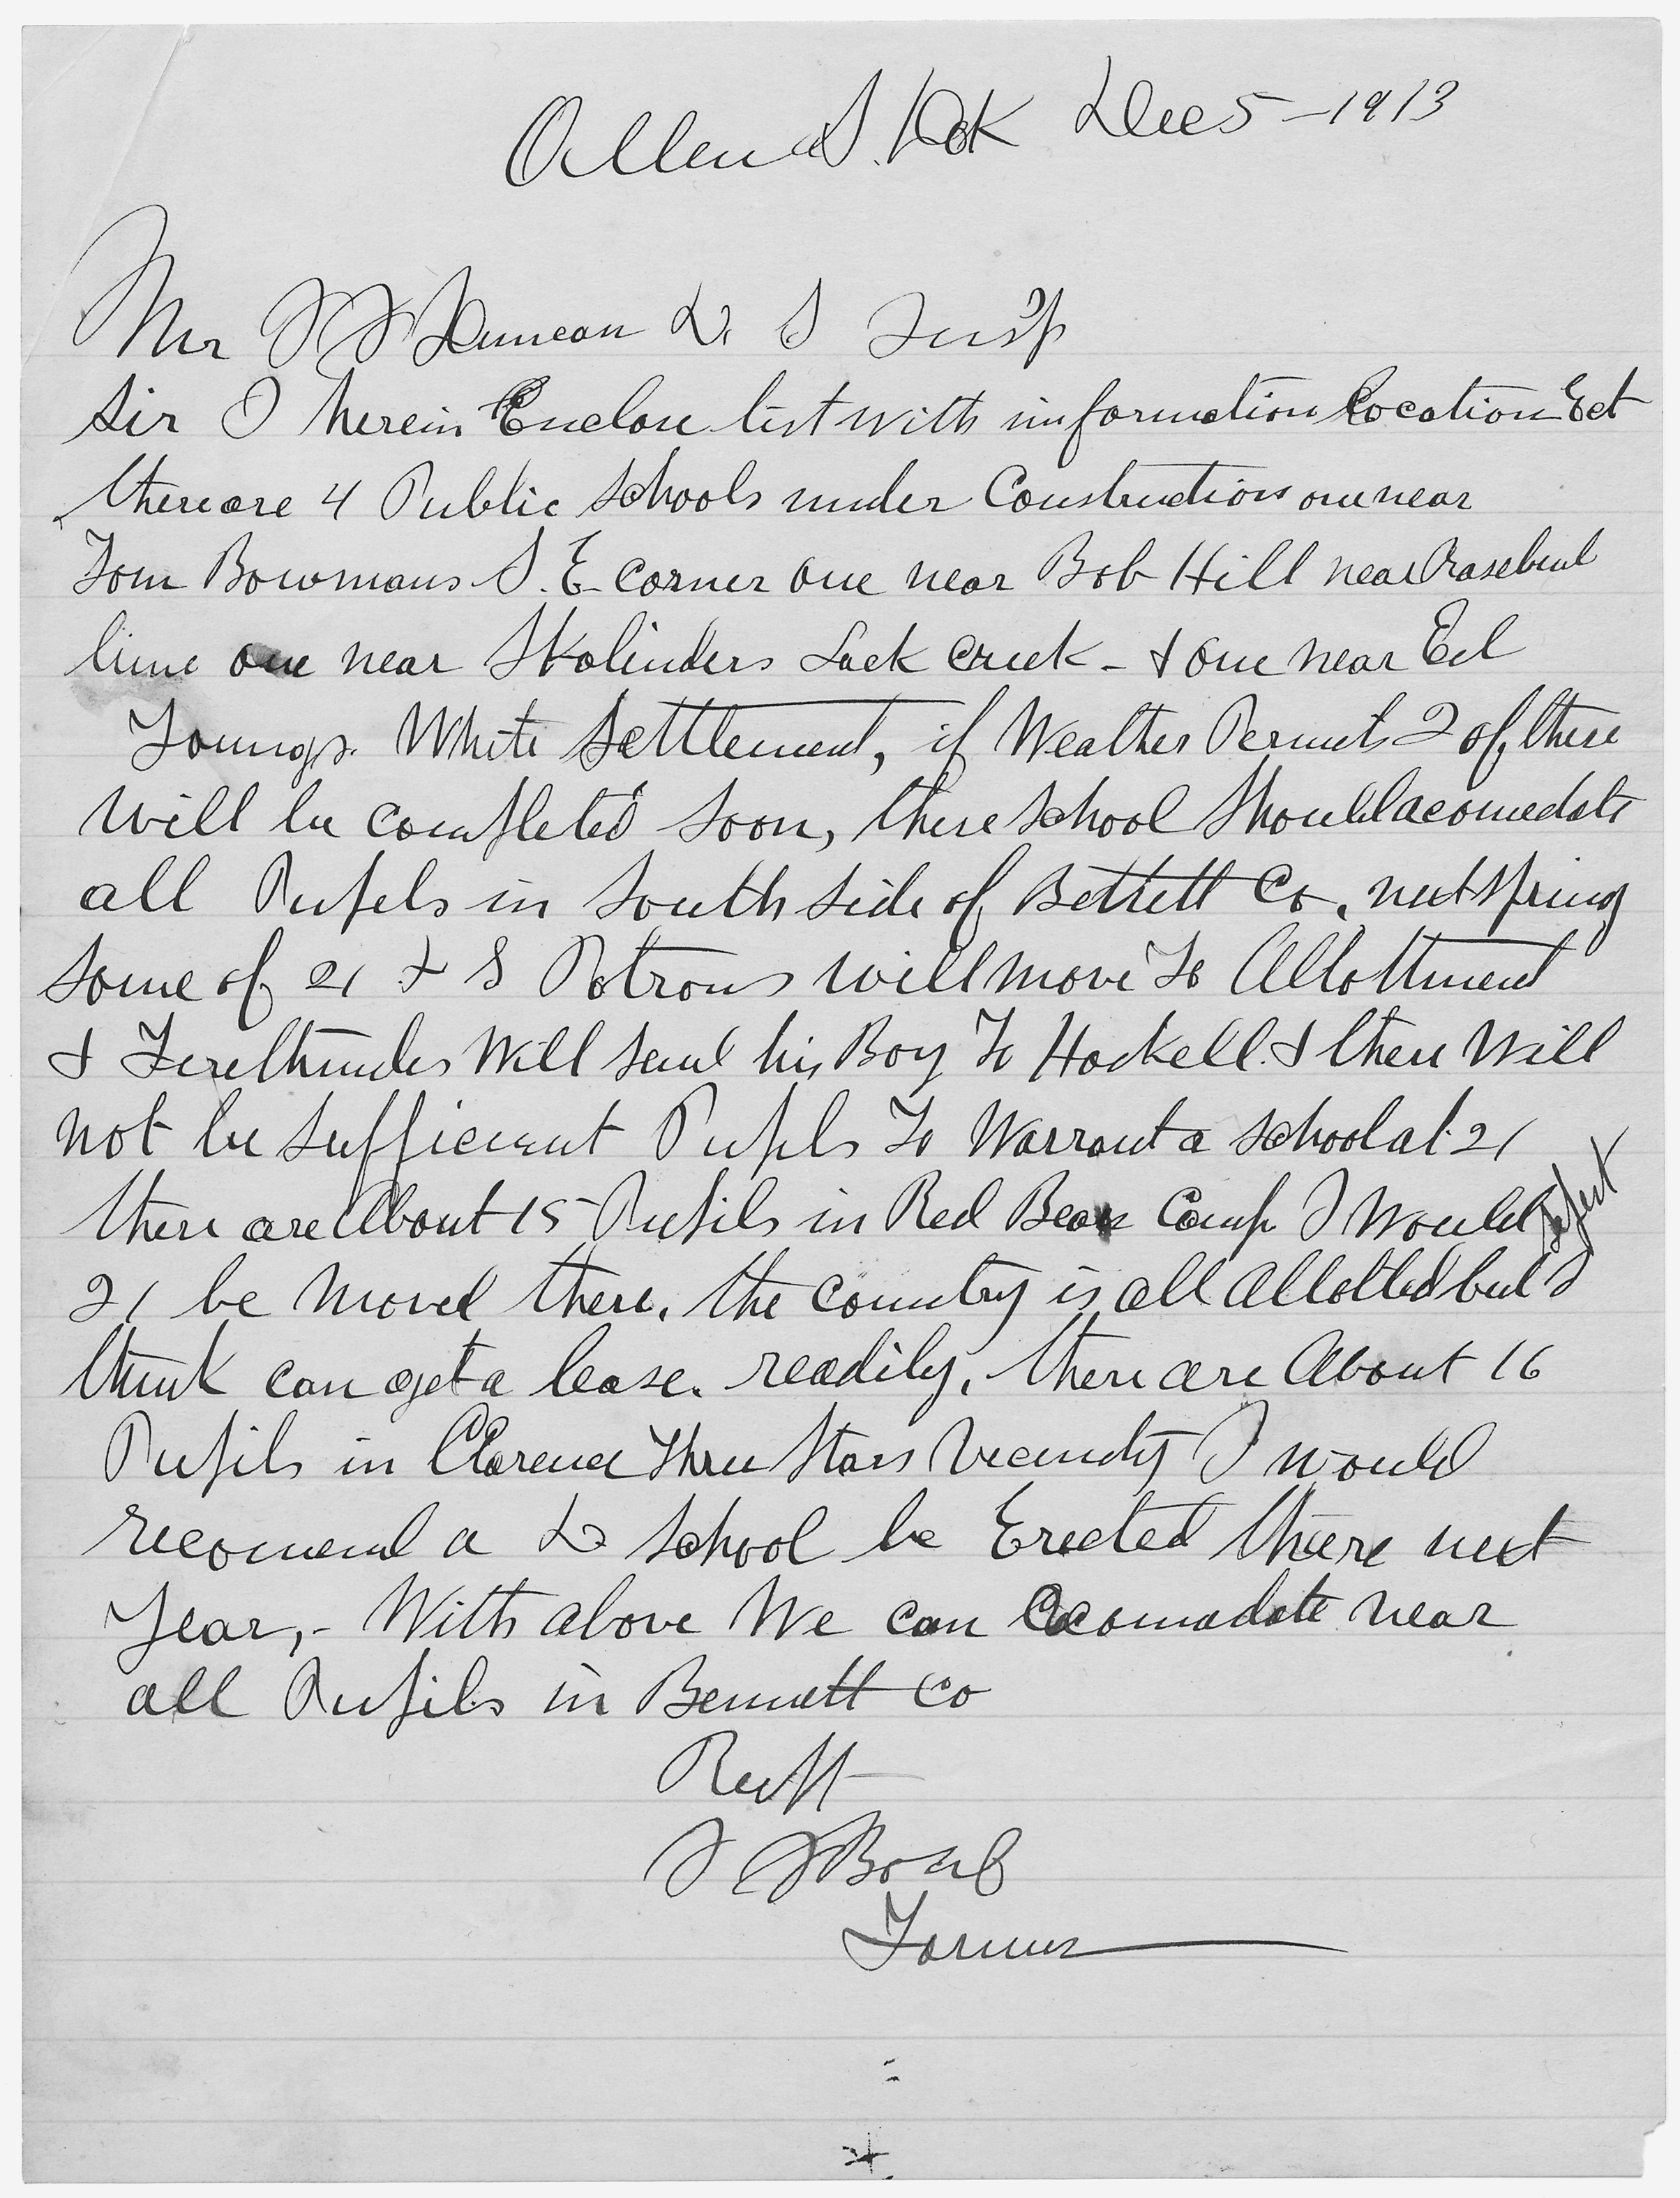 Allen S. Dak Dec 5 - 1913
Mr J J Duncan D. S Insp
Sir I herein Enclose list with information Location Ect
there are 4 Public Schools under Construction one near
Tom Bowmans S.E. corner one near Bob Hill near Rosebud
line one near Skalinders Lack Creek - & one near Ed
Youngs. White Settlement, if Weather Permits 2 of these
will be completed soon, these school should acomedate
all Pupels in South side of Bettett Co, next spring
some of 21 D S Patrons will move to Allottment
& Firethunder Will send his Boy To Haskell. & there Will
not be sufficient Pupils To Warrant a school at 21
there are About 15 Pupils in Red Bear Camp I Would sugest
21 be moved there. the country is all Allotted but I
think can get a lease. readily, there are About 16
Pupils in Clarence Three Stars Vicinity I would
recomend a D school be Erected there next
Year, - With above We can acomadate near
all Pupils in Bennett Co
Restt
Farmer